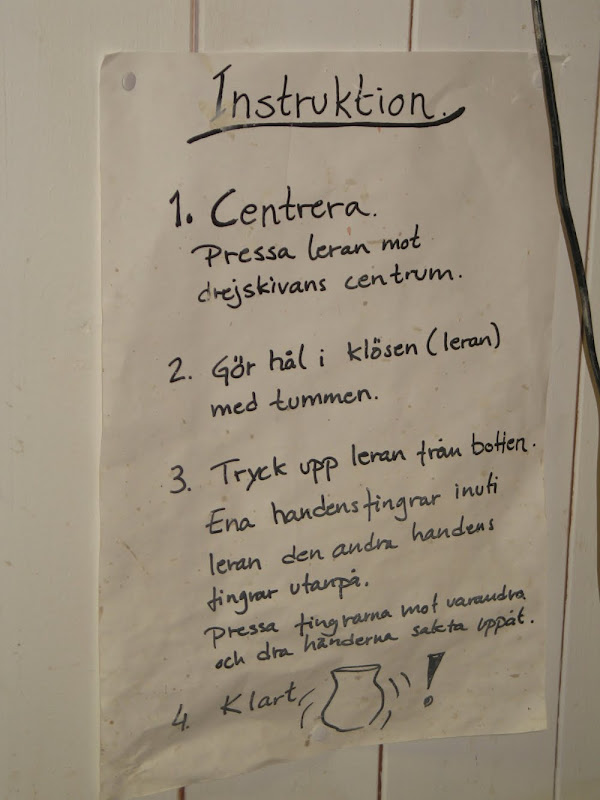 Instruktion.
1. Centrera.
Pressa leran mot
drejskivans centrum.
2. Gör hål i klösen (leran)
med tummen.
3. Tryck upp leran från botten.
Ena handens fingrar inuti
leran den andra handens
fingrar utanpå.
Pressa fingrarna mot varandra
och dra händerna sakta uppåt.
4. Klart !